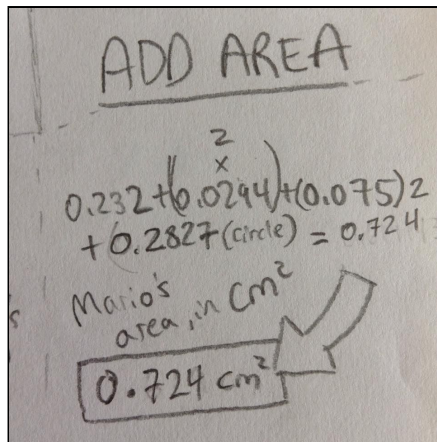 ADD AREA
2
x
0.232+(0.0294)+(0.075)2
+0.2827(circle) = 0.724
Mario's
area, in cm²
0.724 cm²